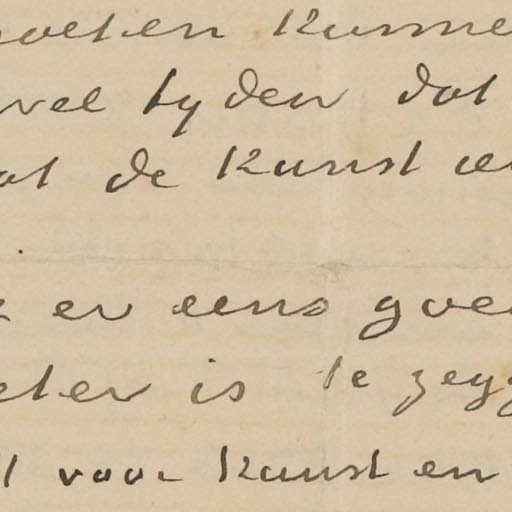 moeten kunne
wel tyden dat
at de Kunst en
er eens goe
eter is te zegg
voor Kunst en